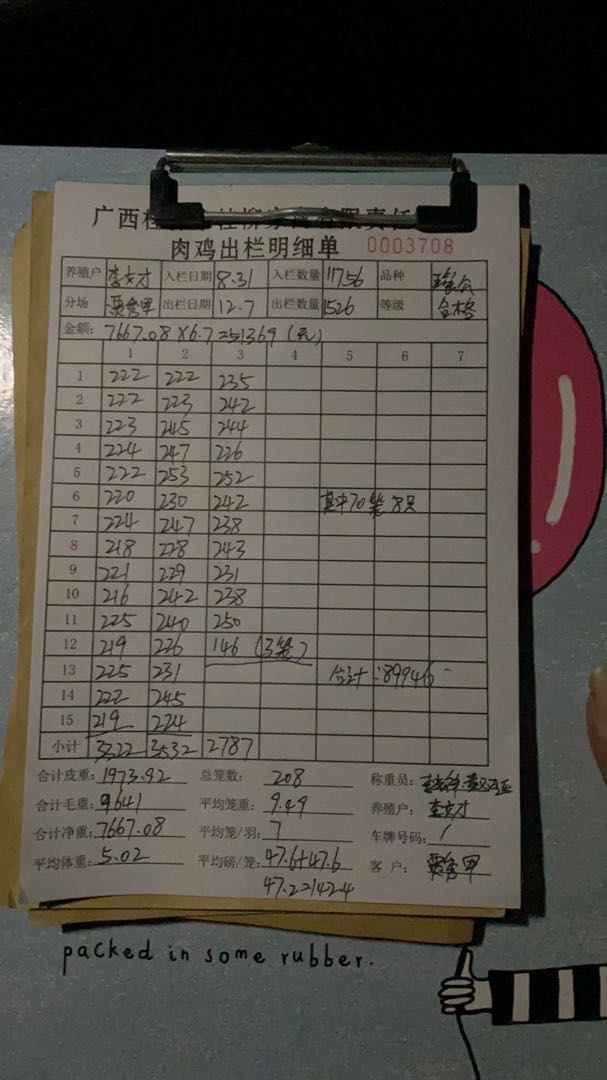 肉鸡出栏明细单 0003708
养殖户 李文才 入栏日期 8.31 入栏数量 11756 品种
分场 贾秀军 出栏日期 12.7 出栏数量 1526 等级 合格
金额: 7667.08×6.7=51369(元)
1 2 3 4 5 6 7
1 222 222 235
2 222 223 242
3 223 245 244
4 224 247 226
5 222 253 252
6 220 230 242 其中70笼8只
7 224 247 238
8 218 228 243
9 221 229 231
10 216 242 238
11 225 240 250
12 219 226 146 (3笼)
13 225 231 合计:89946
14 222 245
15 219 224
小计 3322 3532 2787
合计皮重: 1973.92 总笼数: 208 称重员:
合计毛重: 9641 平均笼重: 9.49 养殖户: 李文才
合计净重: 7667.08 平均笼/羽: 7 车牌号码: /
平均体重: 5.02 平均磅/笼: 47.6+47.6 客户: 贾秀军
47.2=142.4
packed in some rubber.